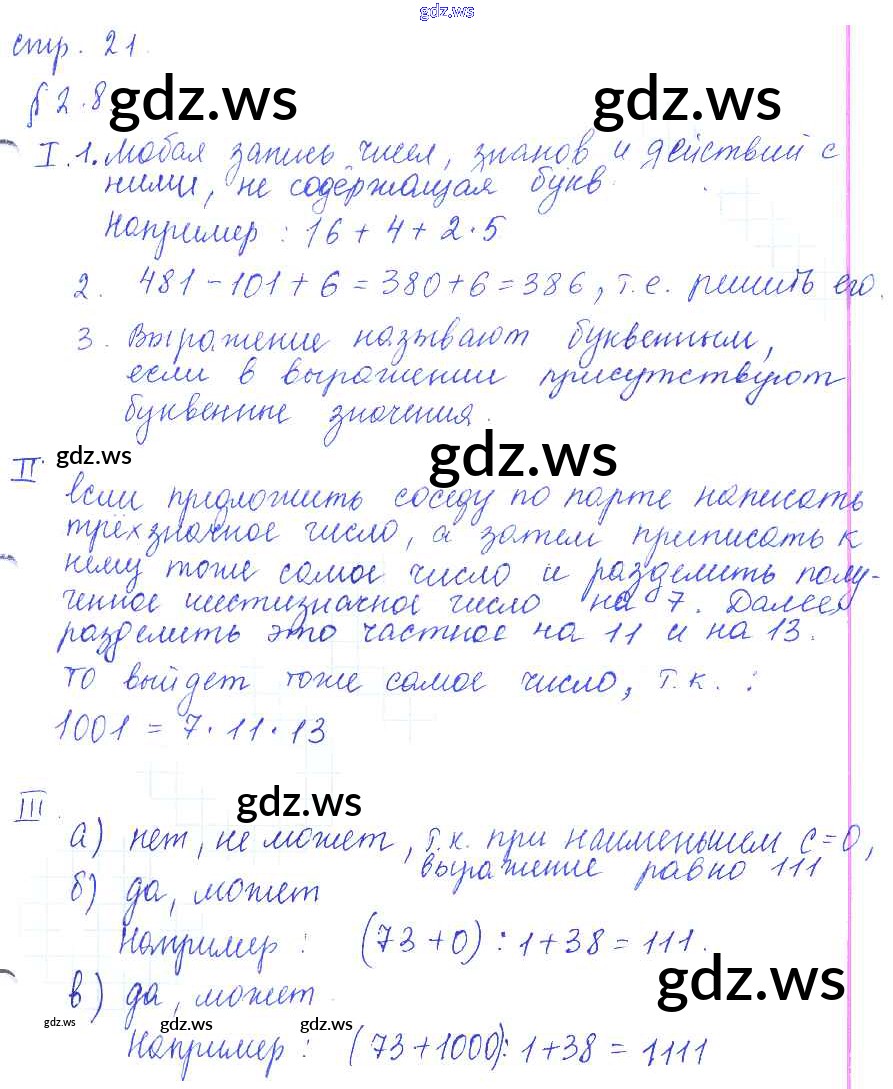 gdz.ws
стр. 21.
§ 2.8. gdz.ws gdz.ws
I. 1. Любая запись чисел, знаков и действий с
ними, не содержащая букв.
Например: 16 + 4 + 2 · 5
2. 481 - 101 + 6 = 380 + 6 = 386, т.е. решить его.
3. Выражение называют буквенным,
если в выражении присутствуют
буквенные значения.
gdz.ws gdz.ws
II. Если предложить соседу по парте написать
трёхзначное число, а затем приписать к
нему тоже самое число и разделить полу-
ченное шестизначное число на 7. Далее
разделить это частное на 11 и на 13.
То выйдет тоже самое число, т.к. :
1001 = 7 · 11 · 13
III. gdz.ws
а) нет, не может, т.к. при наименьшем с=0,
выражение равно 111
б) да, может
Например: (73 + 0) : 1 + 38 = 111.
gdz.ws
в) да, может.
gdz.ws gdz.ws gdz.ws
Например: (73 + 1000) : 1 + 38 = 1111